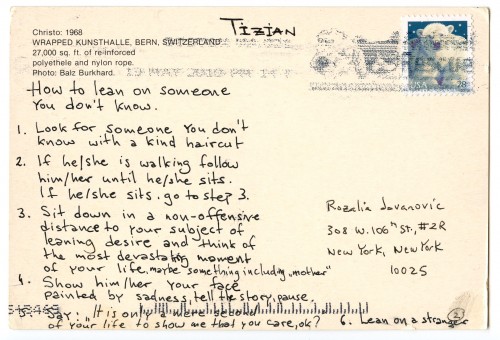 TIZIAN
Christo: 1968
WRAPPED KUNSTHALLE, BERN, SWITZERLAND
27,000 sq. ft. of re-inforced
polyethele and nylon rope.
Photo: Balz Burkhard.
19 MAY 2010 PM
RESCUE
USA 28
How to lean on someone
You don't know.
1. Look for someone You don't
know with a kind haircut
2. If he/she is walking follow
him/her until he/she sits.
If he/she sits. go to step 3.
3. Sit down in a non-offensive
distance to your subject of
leaning desire and think of
the most devastating moment
of your life, maybe something including „mother"
4. Show him/her your face
painted by sadness, tell the story, pause.
5. Say: "It is only a mere second
of your life to show me that you care, ok?
6. Lean on a stranger
2
Rozalia Jovanovic
308 W. 106th St., #2R
New York, New York
10025